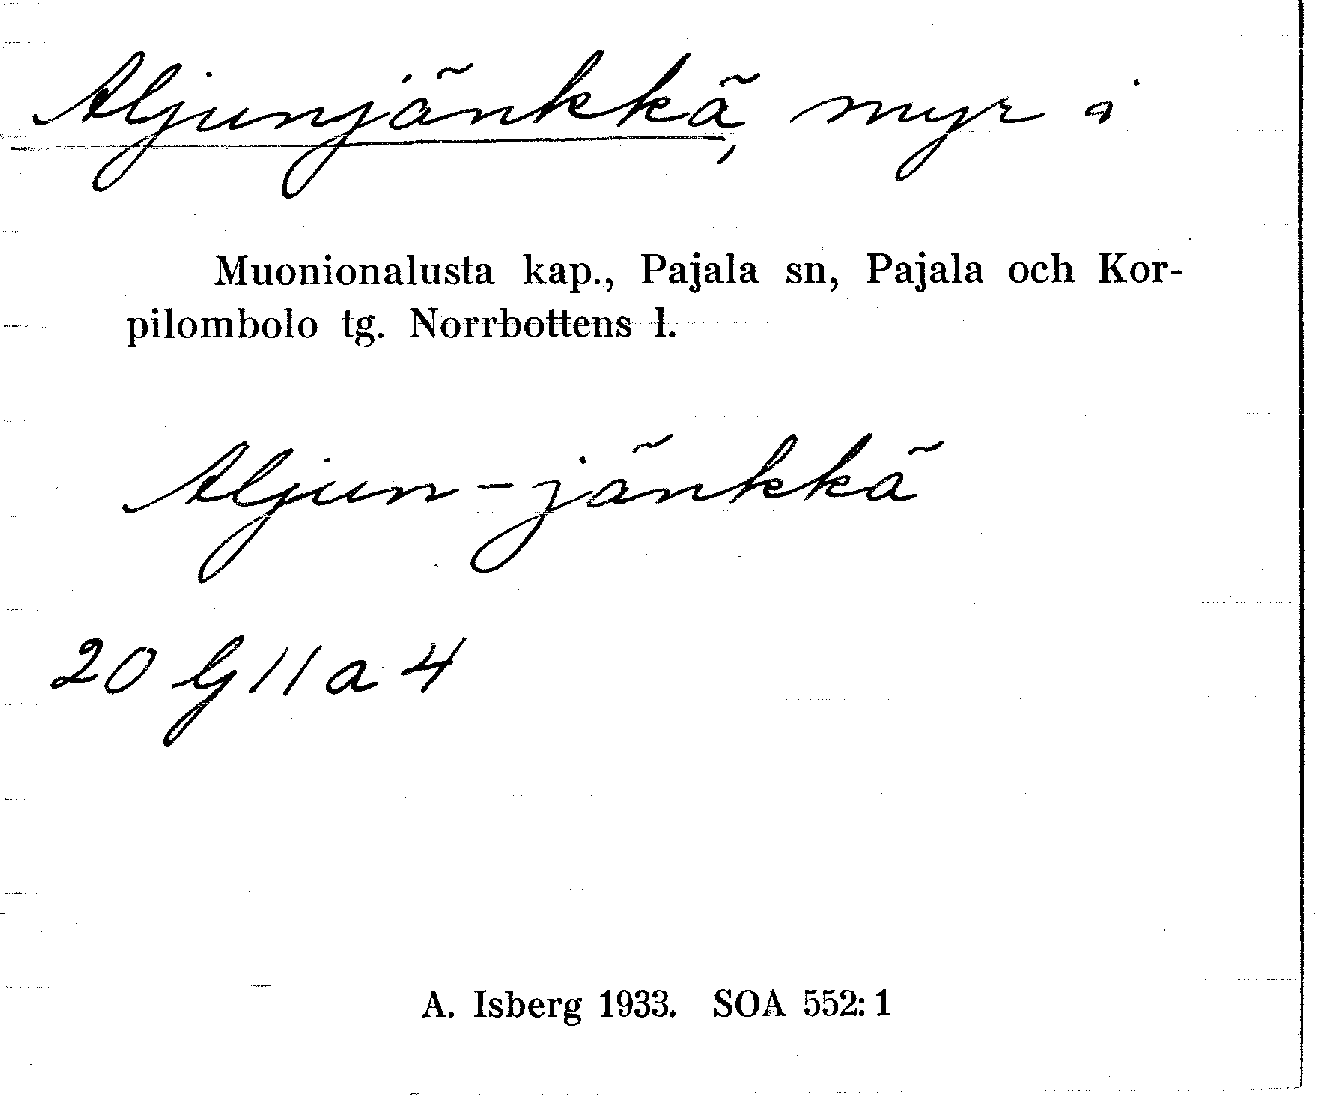 Aljunjänkkä, myr i
Muonionalusta kap., Pajala sn, Pajala och Kor-
pilombolo tg. Norrbottens l.
Aljun-jänkkä
20 G 11 a 4
A. Isberg 1933. SOA 552:1